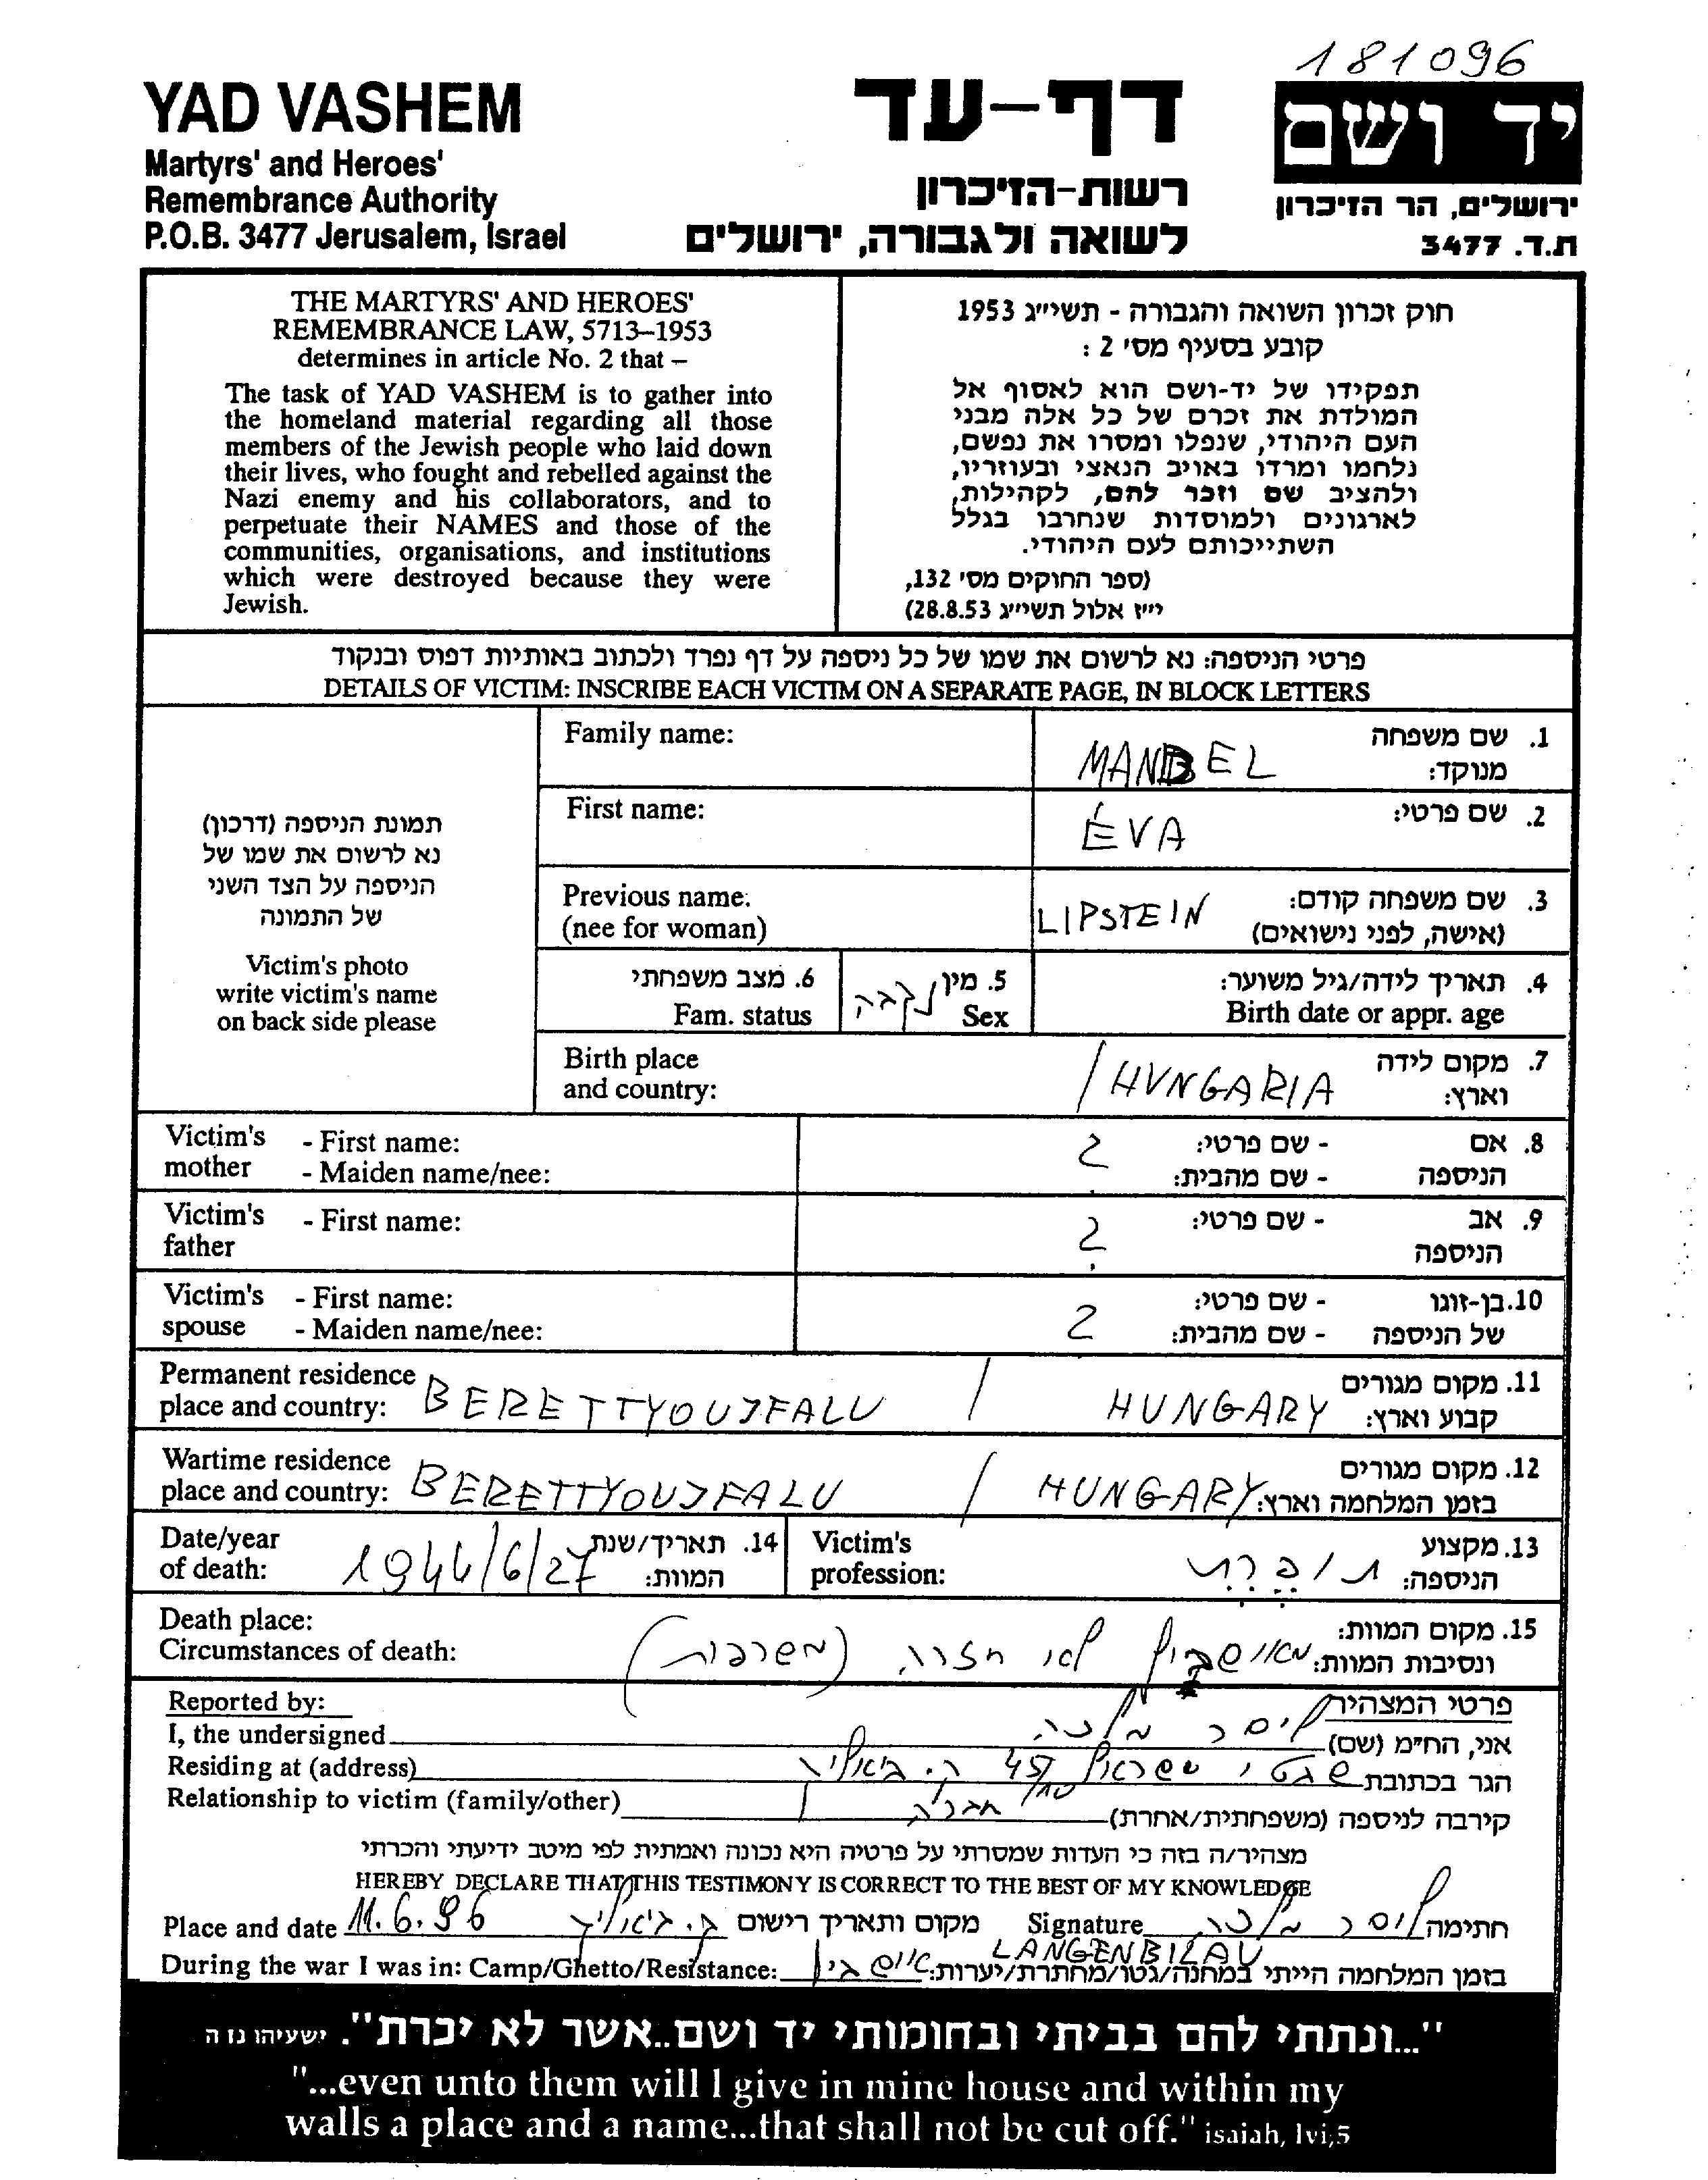 181096
YAD VASHEM
Martyrs' and Heroes'
Remembrance Authority
P.O.B. 3477 Jerusalem, Israel
דף-עד
רשות-הזיכרון
לשואה ולגבורה, ירושלים
יד ושם
ירושלים, הר הזיכרון
ת.ד. 3477
THE MARTYRS' AND HEROES'
REMEMBRANCE LAW, 5713–1953
determines in article No. 2 that –
The task of YAD VASHEM is to gather into
the homeland material regarding all those
members of the Jewish people who laid down
their lives, who fought and rebelled against the
Nazi enemy and his collaborators, and to
perpetuate their NAMES and those of the
communities, organisations, and institutions
which were destroyed because they were
Jewish.
חוק זכרון השואה והגבורה - תשי״ג 1953
קובע בסעיף מס׳ 2 :
תפקידו של יד-ושם הוא לאסוף אל
המולדת את זכרם של כל אלה מבני
העם היהודי, שנפלו ומסרו את נפשם,
נלחמו ומרדו באויב הנאצי ובעוזריו,
ולהציב שם וזכר להם, לקהילות,
לארגונים ולמוסדות שנחרבו בגלל
השתייכותם לעם היהודי.
(ספר החוקים מס׳ 132,
י״ז אלול תשי״ג 28.8.53)
פרטי הניספה: נא לרשום את שמו של כל ניספה על דף נפרד ולכתוב באותיות דפוס ובנקוד
DETAILS OF VICTIM: INSCRIBE EACH VICTIM ON A SEPARATE PAGE, IN BLOCK LETTERS
תמונת הניספה (דרכון)
נא לרשום את שמו של
הניספה על הצד השני
של התמונה
Victim's photo
write victim's name
on back side please
Family name: MANDEL 1. שם משפחה
מנוקד:
First name: ÉVA 2. שם פרטי:
Previous name: LIPSTEIN 3. שם משפחה קודם:
(nee for woman) (אישה, לפני נישואים)
6. מצב משפחתי 5. מין נקבה 4. תאריך לידה/גיל משוער:
Fam. status Sex Birth date or appr. age
Birth place / HUNGARIA 7. מקום לידה
and country: וארץ:
Victim's - First name: ? - שם פרטי: 8. אם
mother - Maiden name/nee: - שם מהבית: הניספה
Victim's - First name: ? - שם פרטי: 9. אב
father הניספה
Victim's - First name: ? - שם פרטי: 10. בן-זוגו
spouse - Maiden name/nee: - שם מהבית: של הניספה
Permanent residence 11. מקום מגורים
place and country: BERETTYOUJFALU / HUNGARY קבוע וארץ:
Wartime residence 12. מקום מגורים
place and country: BERETTYOUJFALU / HUNGARY בזמן המלחמה וארץ:
Date/year 14. תאריך/שנת Victim's 13. מקצוע
of death: 1944/6/27 המוות: profession: הניספה:
Death place: 15. מקום המוות:
Circumstances of death: מאושביץ לא חזרה (משרפות) ונסיבות המוות:
Reported by: פרטי המצהיר
I, the undersigned אני, החי״מ (שם)
Residing at (address) 45/10 ק. ביאליק הגר בכתובת
Relationship to victim (family/other) חברה קירבה לניספה (משפחתית/אחרת)
מצהיר/ה בזה כי העדות שמסרתי על פרטיה היא נכונה ואמתית לפי מיטב ידיעתי והכרתי
HEREBY DECLARE THAT THIS TESTIMONY IS CORRECT TO THE BEST OF MY KNOWLEDGE
Place and date 11.6.96 ק. ביאליק מקום ותאריך רישום Signature חתימה
LANGENBILAU
During the war I was in: Camp/Ghetto/Resistance: אושביץ בזמן המלחמה הייתי במחנה/גטו/מחתרת/יערות:
"...ונתתי להם בביתי ובחומותי יד ושם..אשר לא יכרת". ישעיהו נז ה
"...even unto them will I give in mine house and within my
walls a place and a name...that shall not be cut off." isaiah, lvi,5